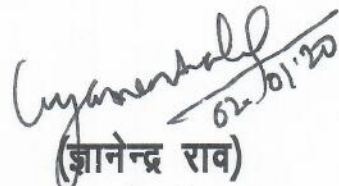 02.01.20
(ज्ञानेन्द्र राव)